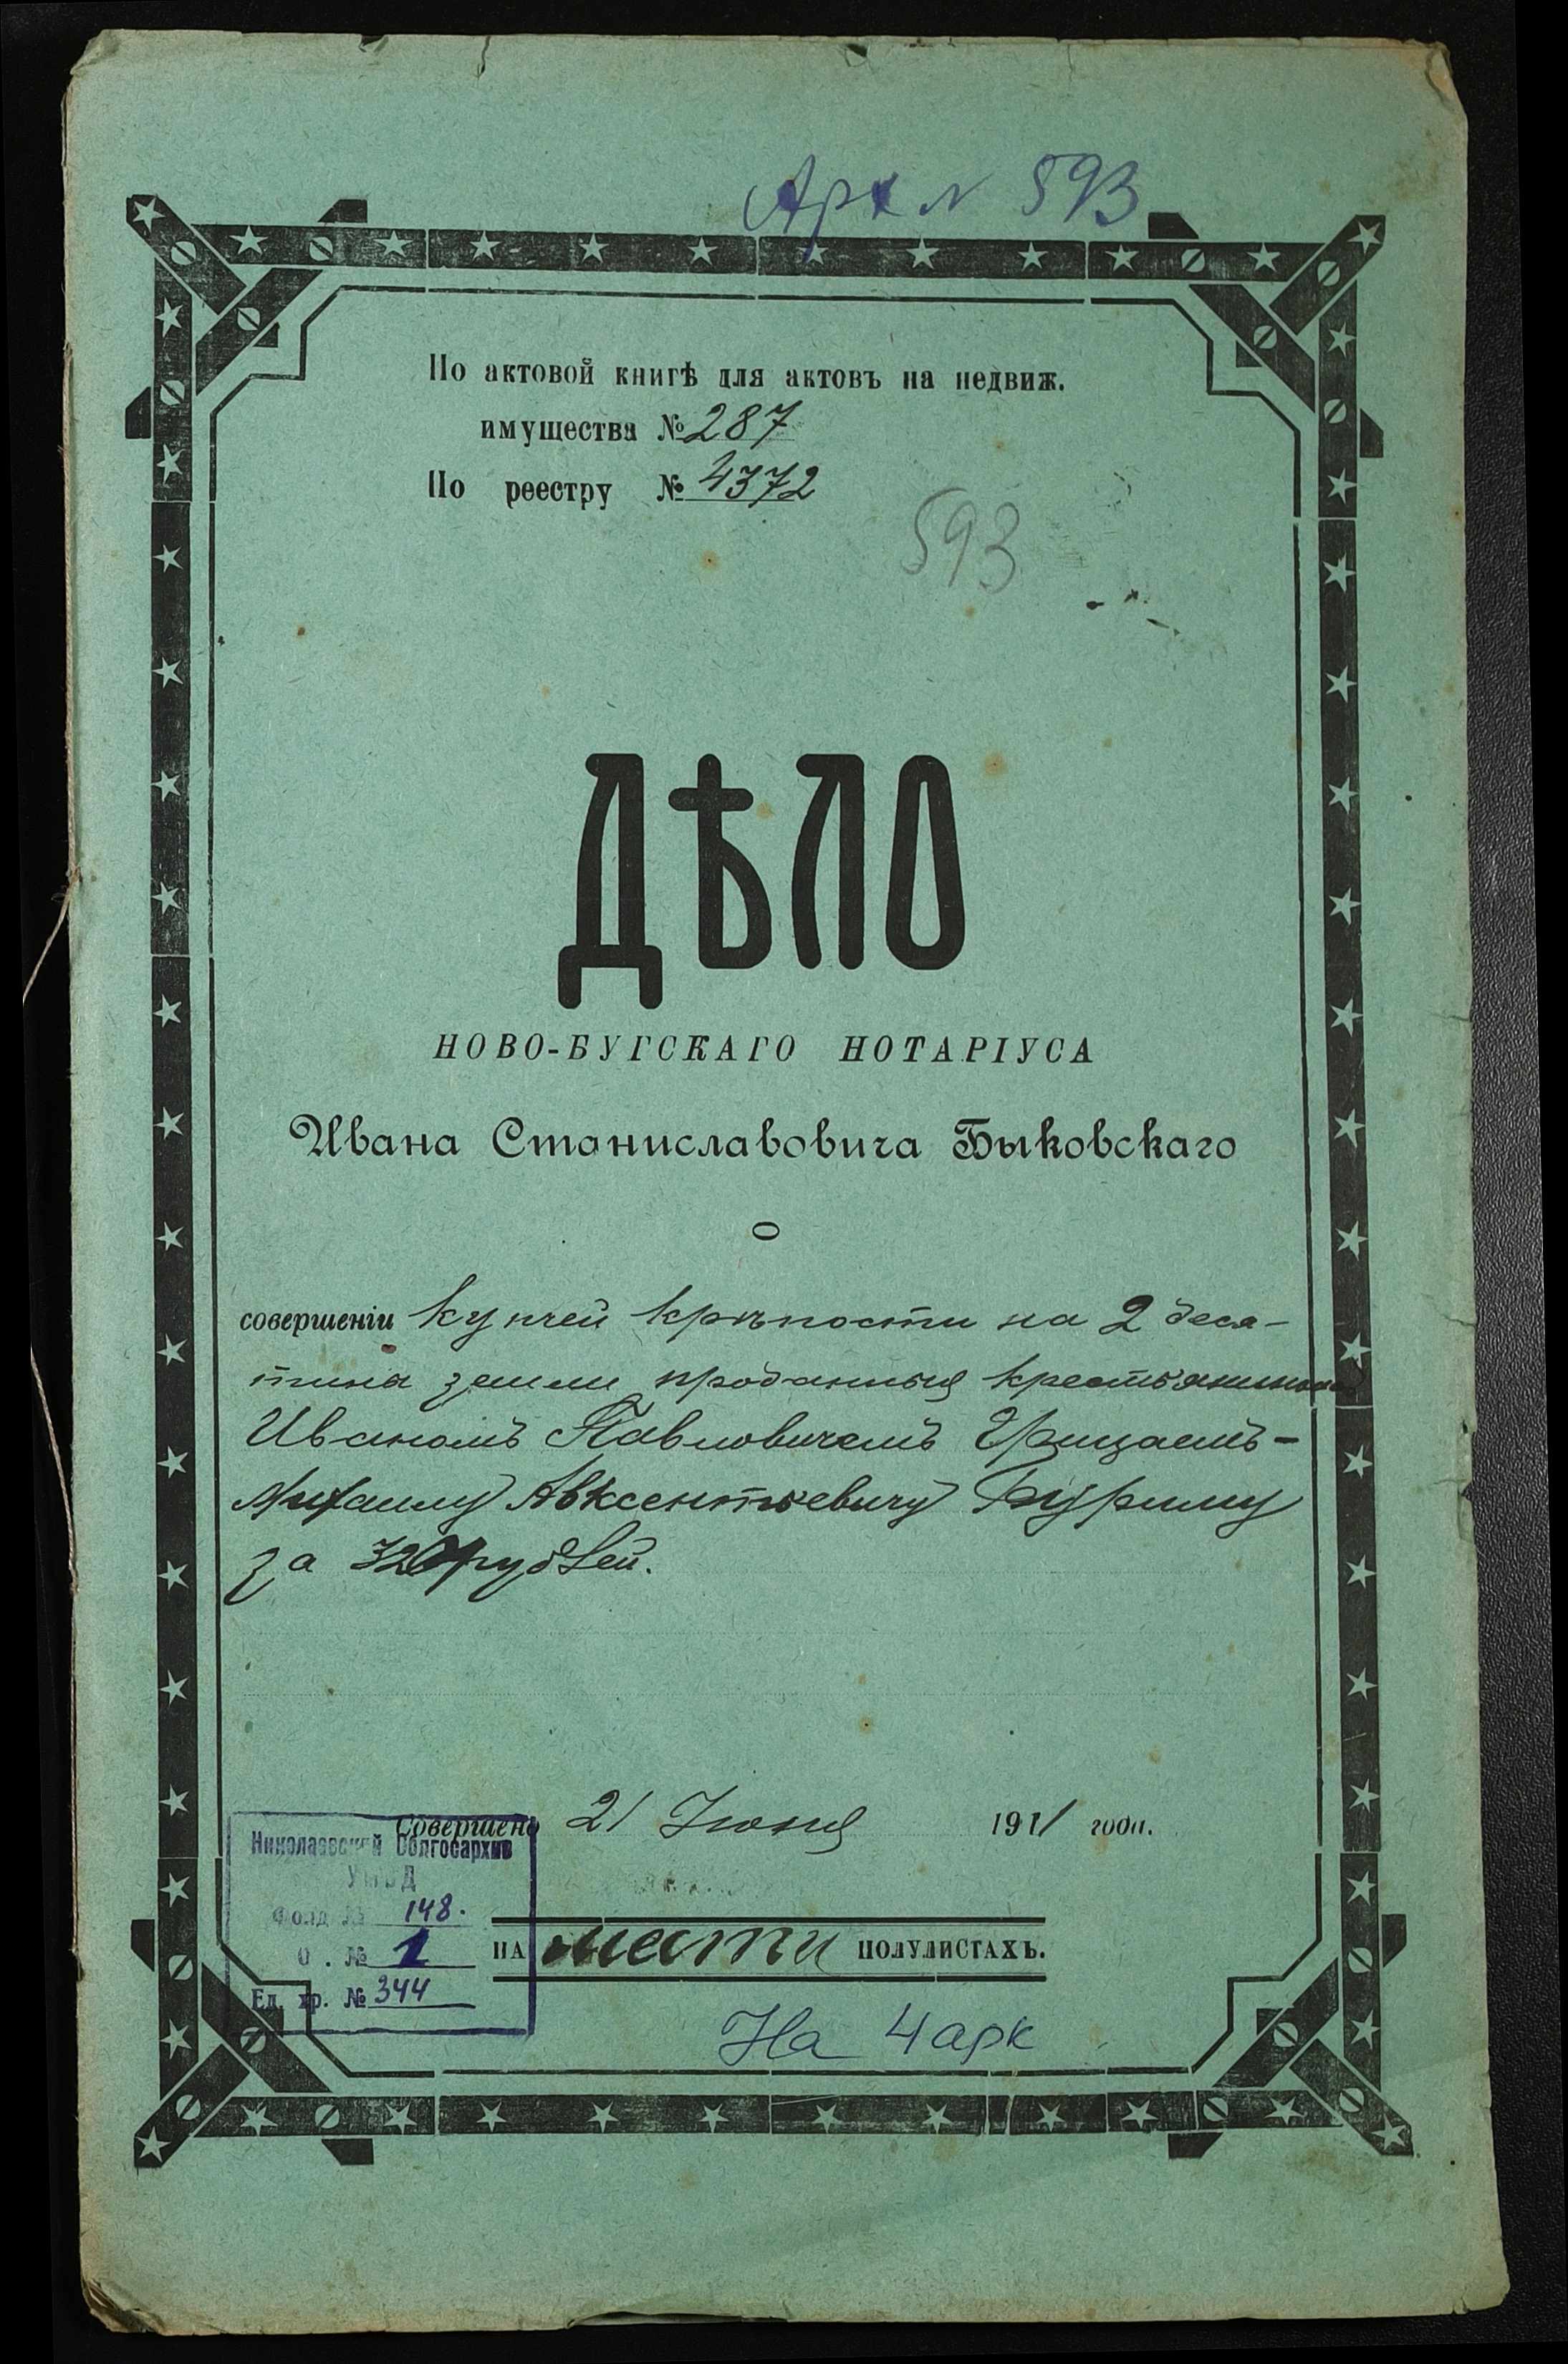 Арх № 593
По актовой книгѣ для актовъ на недвиж.
имущества № 287
По реестру № 4372
593
ДѢЛО
НОВО-БУГСКАГО НОТАРІУСА
Ивана Станиславовича Быковскаго
О
совершеніи купчей крѣпости на 2 деся-
тины земли проданныя крестьяниномъ
Иваномъ Павловичемъ Грицаемъ-
Михаилу Авксентьевичу Бурлму
за 320 рублей.
Совершено 21 Іюня 1911 года.
Николаевский Облгосархив
УНКВД
Фонд № 148.
О . № 1
Ед. хр. № 344
НА шести ПОЛУЛИСТАХЪ.
На 4 арк